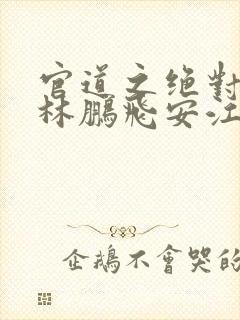 官道之绝對
林鵬飛安江
企鵝不會哭的